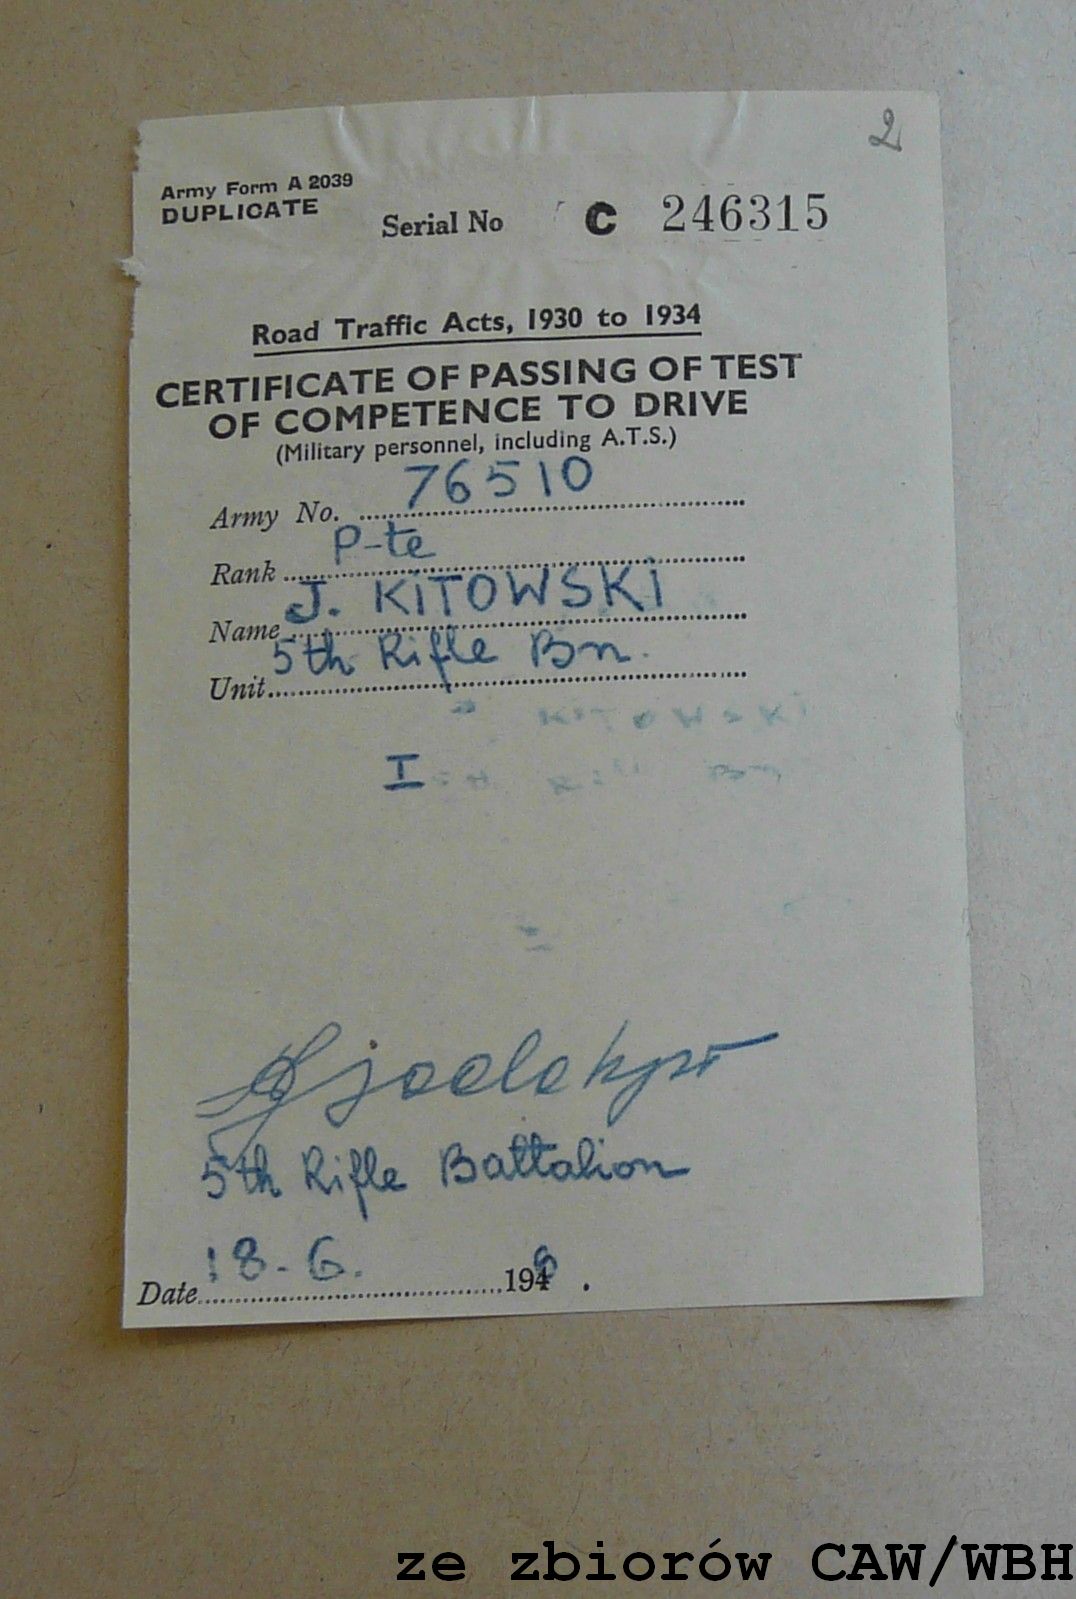 2
Army Form A 2039
DUPLICATE
Serial No C 246315
Road Traffic Acts, 1930 to 1934
CERTIFICATE OF PASSING OF TEST
OF COMPETENCE TO DRIVE
(Military personnel, including A.T.S.)
Army No. 76510
Rank P-te
Name J. KiTOWSKi
Unit 5th Rifle Bn.
KITOWSKI
I
5th Rifle Battalion
Date 18-6. 194 .
ze zbiorów CAW/WBH